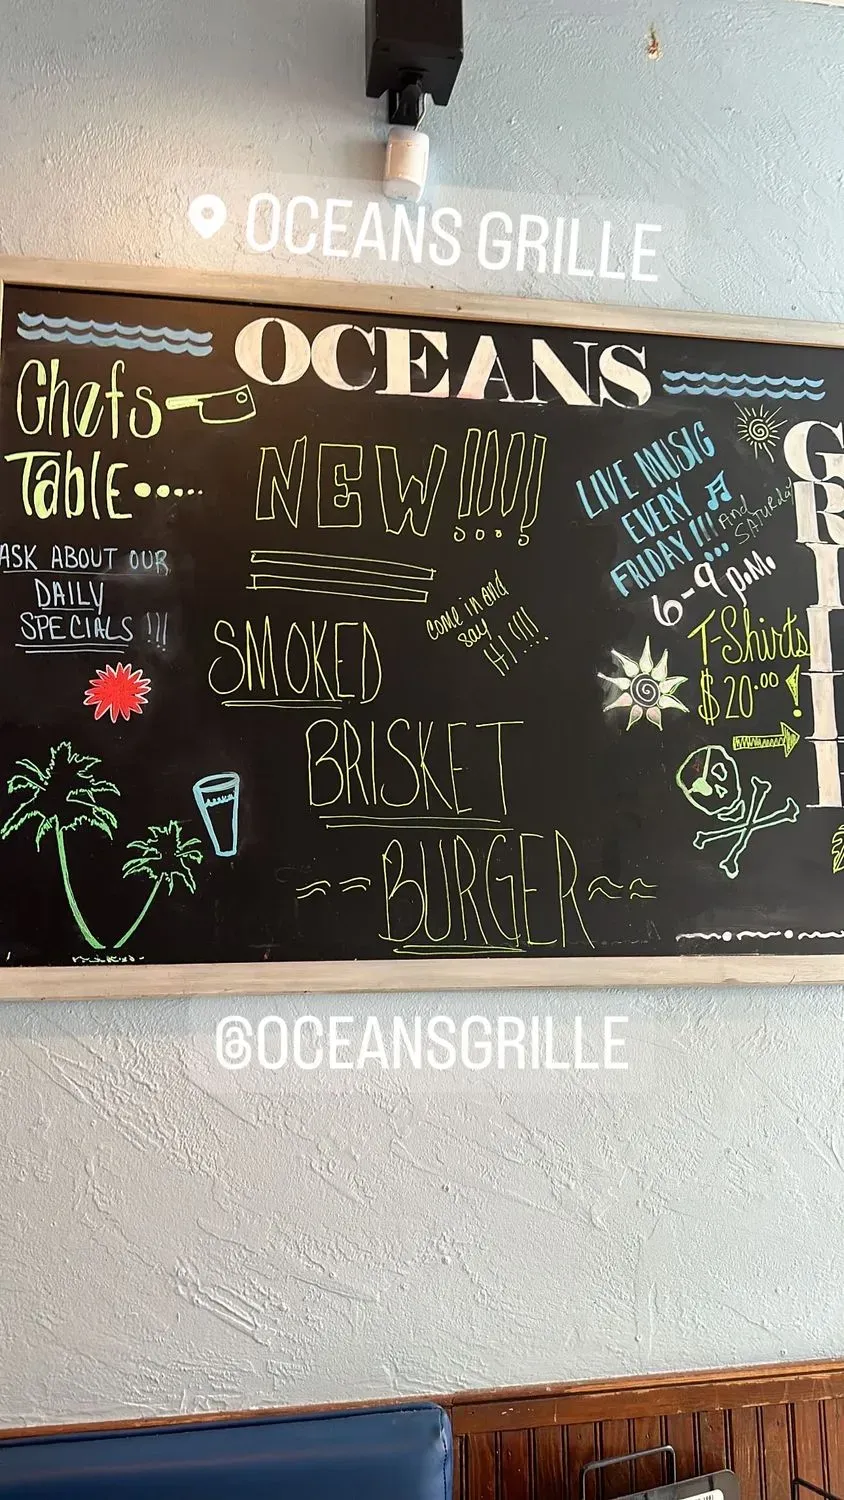 OCEANS GRILLE
OCEANS
GRILL
Chefs
Table.....
ASK ABOUT OUR
DAILY
SPECIALS !!!
NEW!!!!
come in and
say
Hi!!!!
SMOKED
BRISKET
BURGER
LIVE MUSIC
EVERY
FRIDAY!!!
And
SATURDAY
6-9 p.m.
T-Shirts
$20.00!
@OCEANSGRILLE